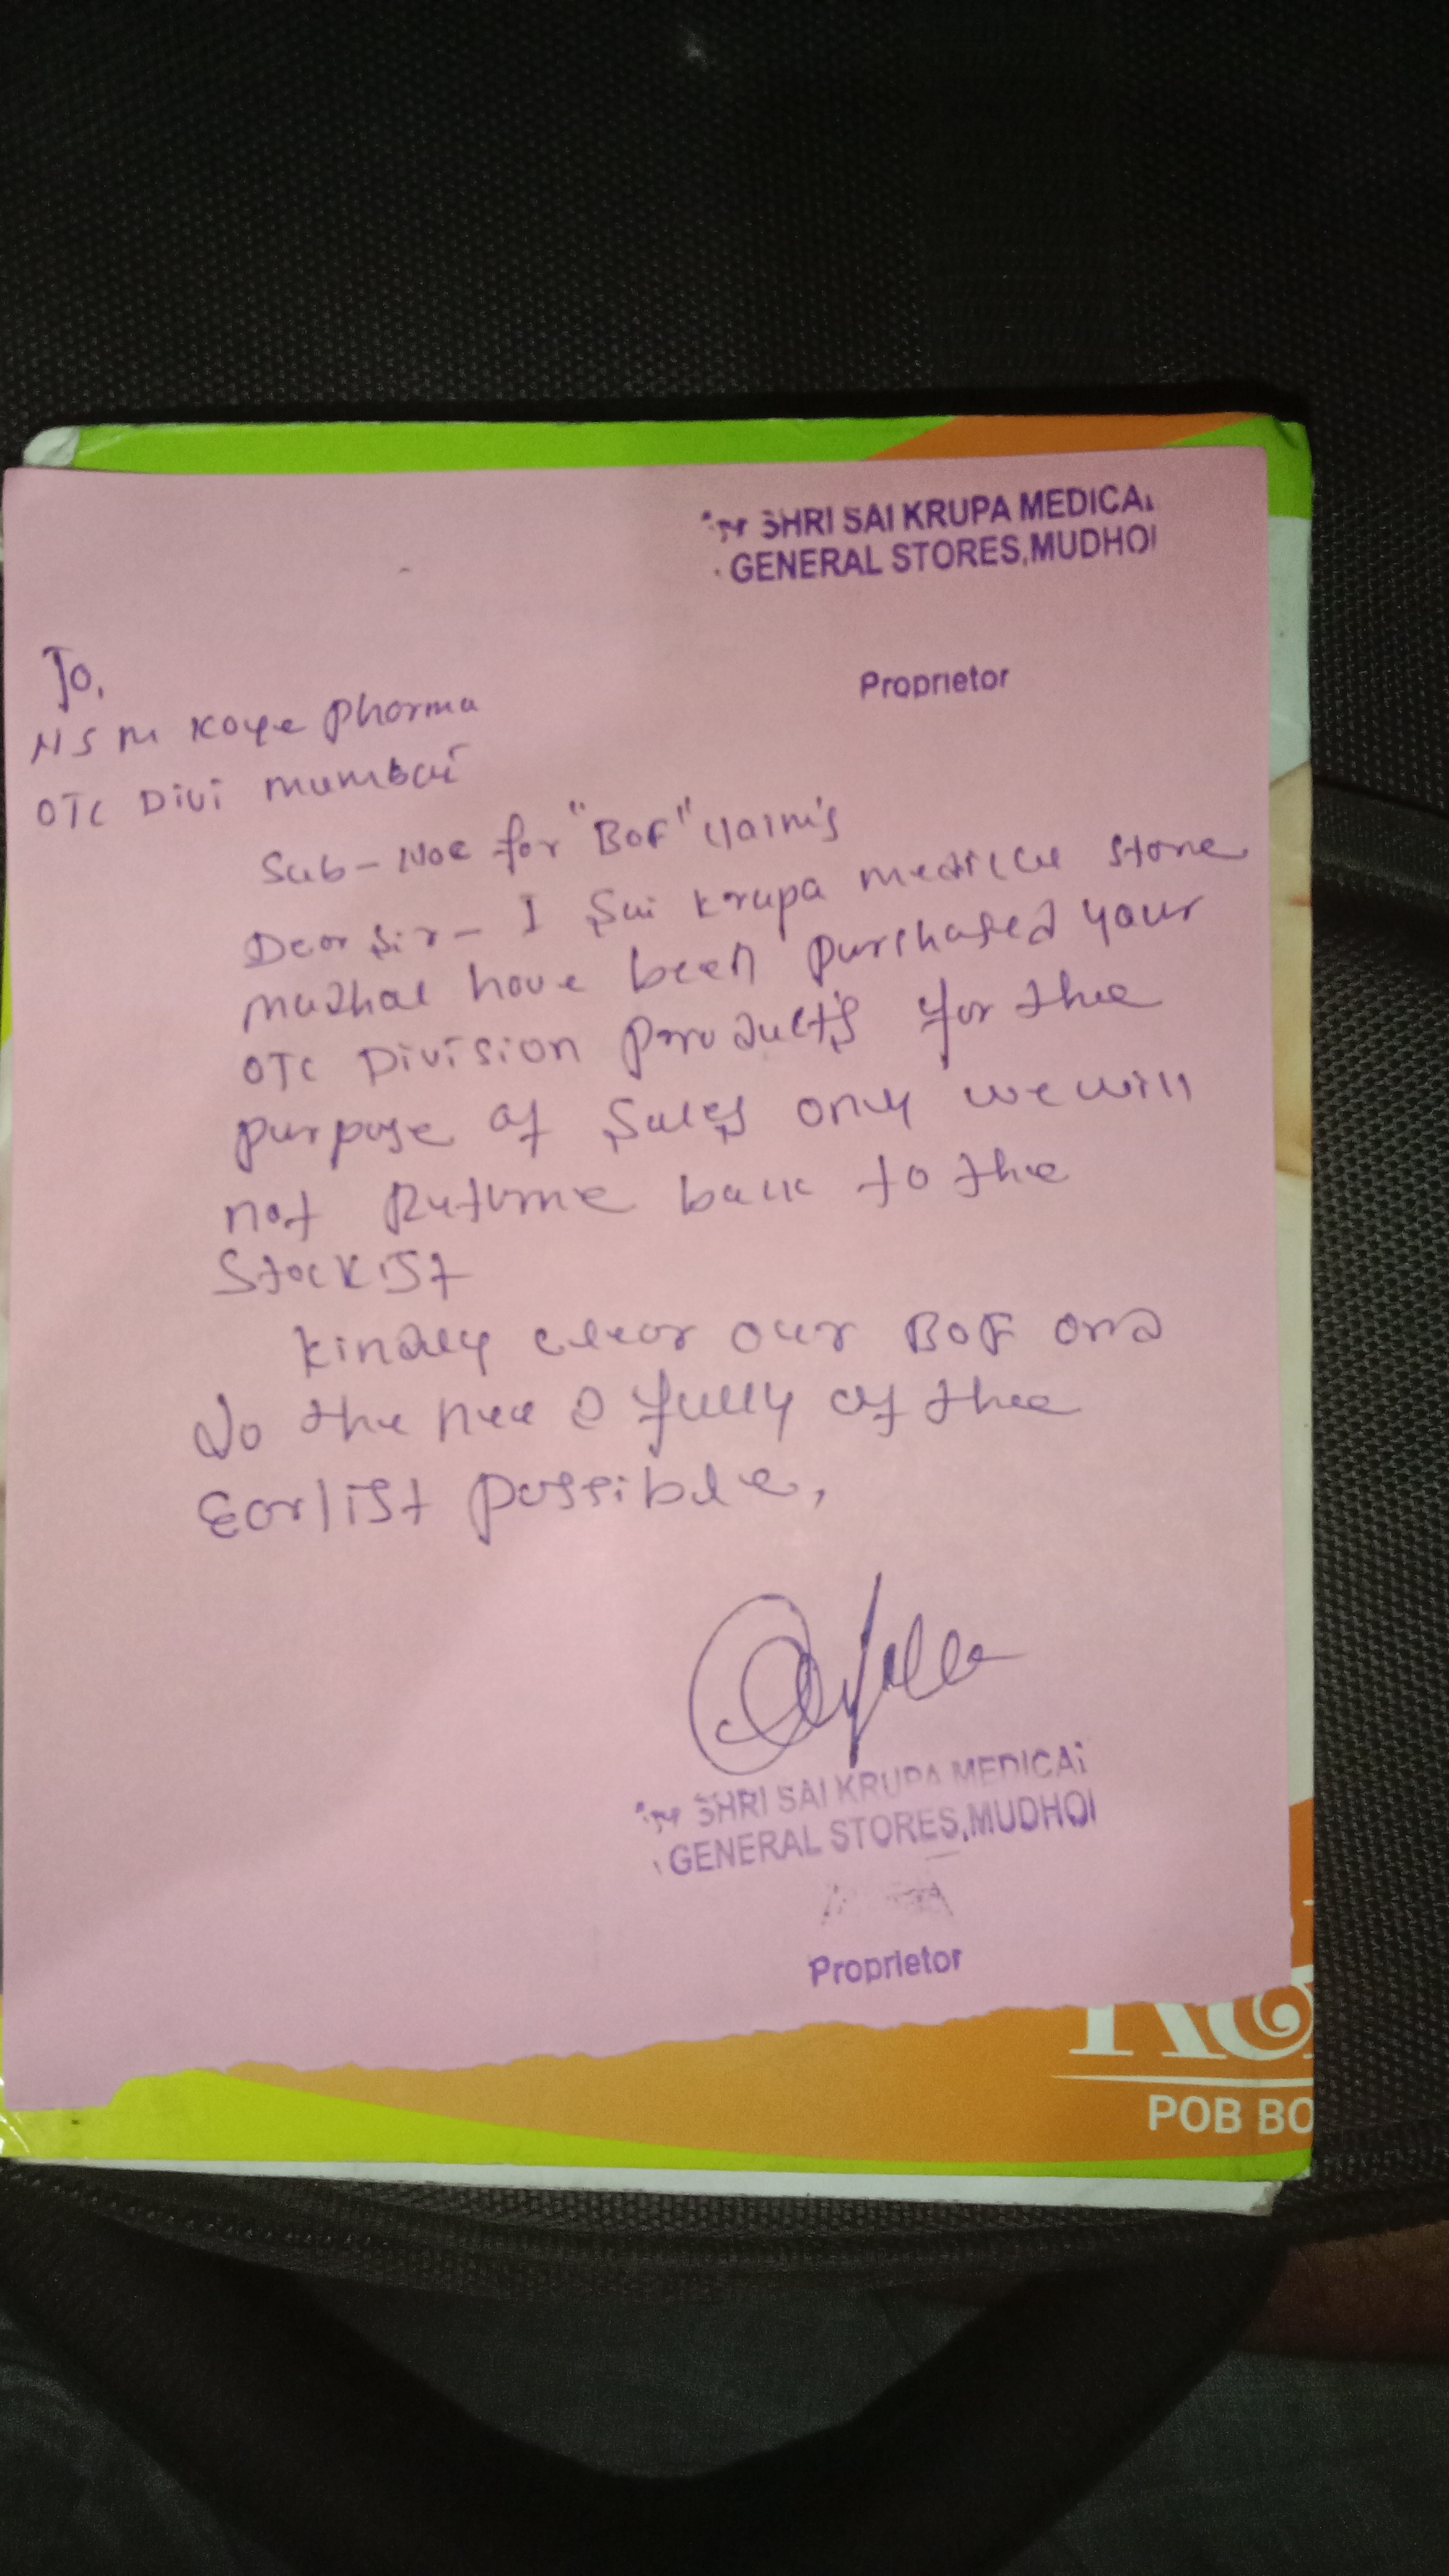 SHRI SAI KRUPA MEDICAL
GENERAL STORES, MUDHOL
Proprietor
To,
NSM Koye Pharma
OTC Divi Mumbai
Sub - Noc for "BOF" claim's
Dear Sir - I Sai Krupa medical store
Mudhol have been purchased your
OTC Division product's for the
purpose of Sales only we will
not Returne back to the
Stockist
Kindly clear our BOF and
do the need fully of the
Earlist possible,
SHRI SAI KRUPA MEDICAL
GENERAL STORES, MUDHOL
Proprietor
POB BO